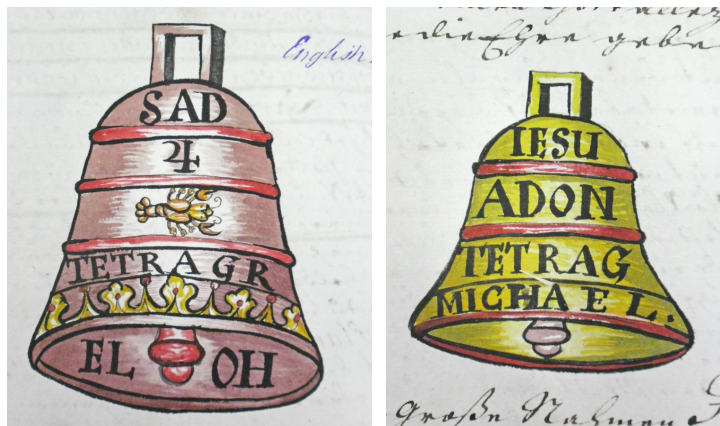 English.
SAD
♃
TETRAGR
EL OH
die Ehre gebe
IESU
ADON
TETRAG
MICHAEL.
große Nahmen